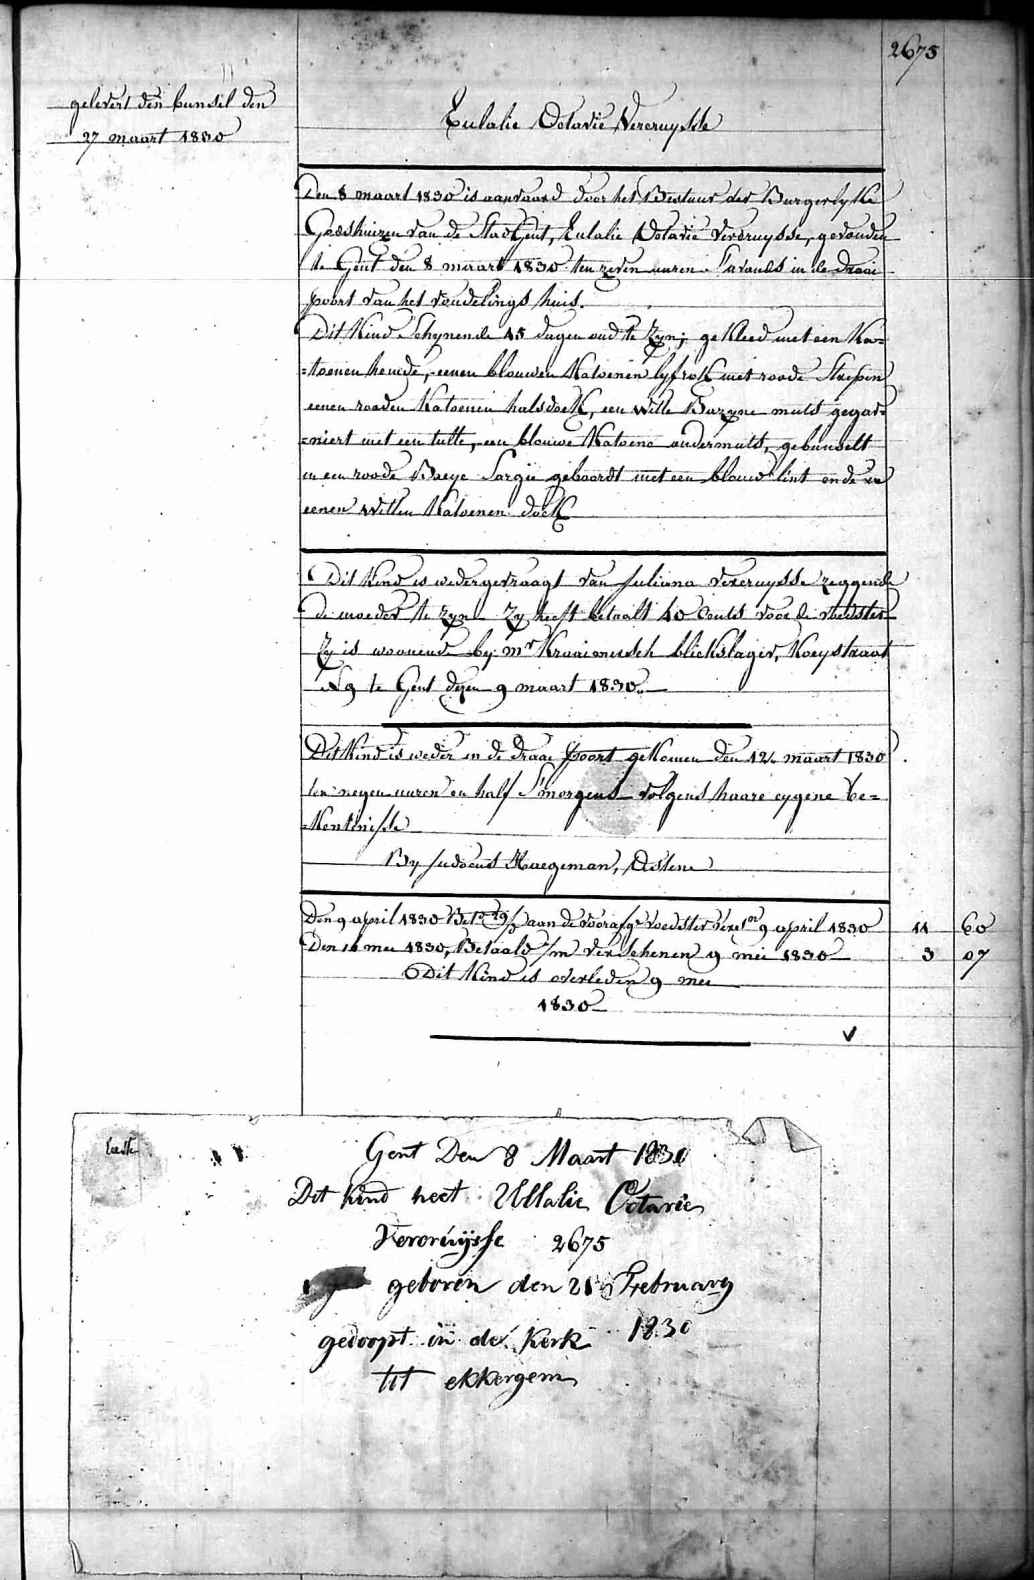 2675
gelevert den bunsel den
27 maart 1830
Eulalie Octavie Vercruysse
Den 8 maart 1830 is aanvaard door het Bestuur der Burgerlyke
Godshuizen van de Stad Gent, Eulalie Octavie Vercruysse, gevonden
te Gent den 8 maart 1830 ten zeven uuren s'avonds in de draai
poort van het vondelings huis.
Dit Kind Schynende 15 dagen oud te Zyn; gekleed met een Ka=
=toenen hemde, eenen blouwen Katoenen lyfrok met roode Strepen
eenen rooden Katoenen halsdoek, een witte Bazyne muts gegar=
=niert met een tulle, een blouwe Katoene ondermuts, gebunselt
in een roode Baeye Sargie geboordt met een blouw lint ende in
eenen witten Katoenen doek
Dit Kind is wedergevraagt van Juliana vercruysse zeggende
de moeder te zyn Zy heeft betaalt 40 Cents voor de voedster
Zy is woonende by mr Kraaimersch blickslager, Koeystraat
N 9 te Gent dezen 9 maart 1830
Dit Kind is weder in de draai poort gekomen den 12 maart 1830
ten negen uuren en half S'morgens volgens haare eygene be=
=kentenisse
By Judocus Haegeman, Astene
Den 9 april 1830 aan de voedster 9 april 1830 11 60
Den 10 mei 1830, Betaald 1/m verschenen 9 mei 1830 3 07
Dit Kind is overleden 9 mei
1830
V
Gent Den 8 Maart 1830
Dit kind heet Ullalie Octavie
Vercruijsse 2675
geboren den 21 February
gedoopt in de Kerk 1830
tot ekkergem